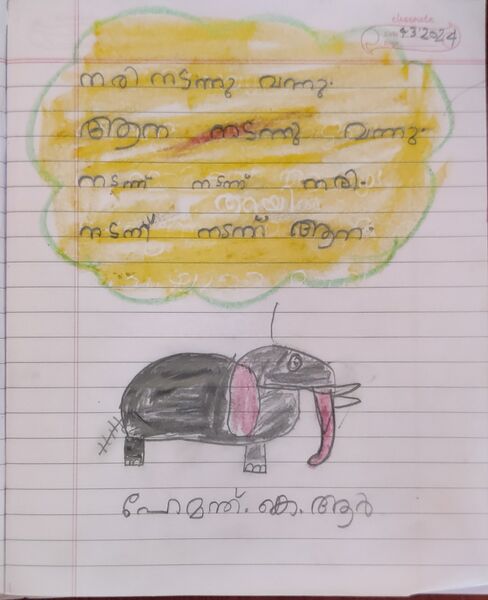 classmate
4·3·2024
നരി നടന്നു വന്നു.
ആന നടന്നു വന്നു.
നടന്ന് നടന്ന് നരി.
നടന്ന് നടന്ന് ആന.
ഹേമന്ത്. കെ. ആർ